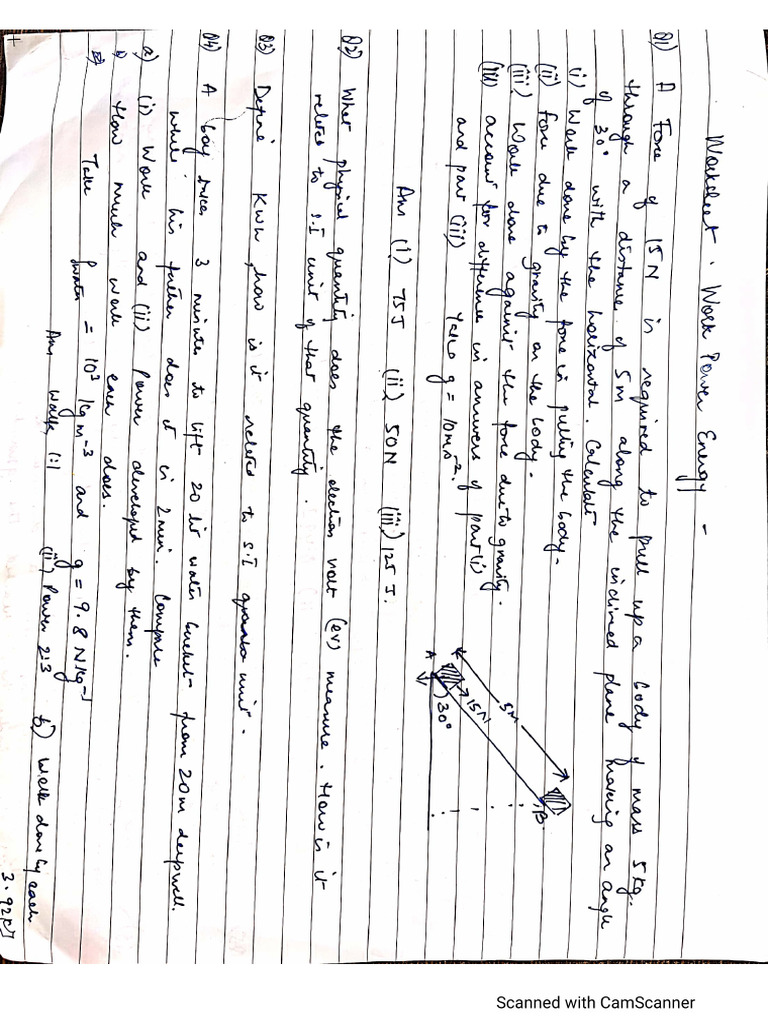 Worksheet. Work Power Energy -
Q1) A Force of 15N is required to pull up a body of mass 5kg.
through a distance of 5m along the inclined plane having an angle
of 30° with the horizontal. Calculate
(i) Work done by the force in pulling the body.
(ii) force due to gravity on the body.
(iii) Work done against the force due to gravity.
(iiii) account for difference in answers of part (i)
and part (iii) Take g = 10m/s⁻².
5M
15N
A
30°
B
Ans (i) 75J (ii) 50N (iii) 125J.
Q2) What physical quantity does the electron volt (ev) measure. How is it
related to S.I unit of that quantity.
Q3) Define KWH, how is it related to S.I unit.
Q4) A boy takes 3 minutes to lift 20 lit water bucket from 20m deep well.
while his father does it in 2 min. Compare
a) (i) Work and (ii) Power developed by them.
b) How much work each does.
Take ρwater = 10³ kg m⁻³ and g = 9.8 N kg⁻¹
Ans 1:1 (ii) Power 2:3 b) Work done by each
3.92KJ
Scanned with CamScanner